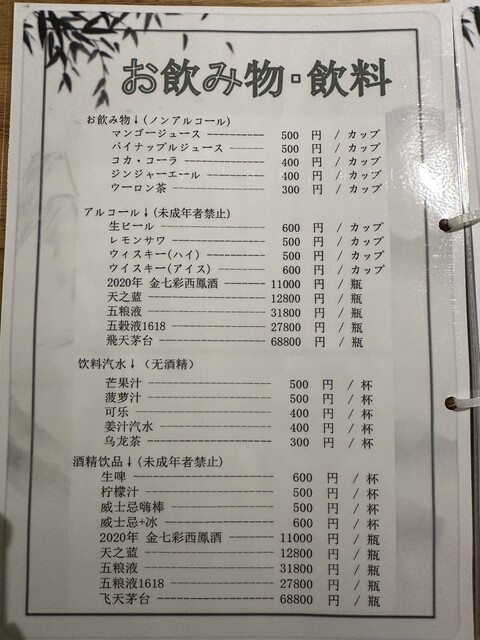 お飲み物・飲料
お飲み物↓(ノンアルコール)
マンゴージュース 500 円 / カップ
パイナップルジュース 500 円 / カップ
コカ・コーラ 400 円 / カップ
ジンジャーエール 400 円 / カップ
ウーロン茶 300 円 / カップ
アルコール↓(未成年者禁止)
生ビール 600 円 / カップ
レモンサワ 500 円 / カップ
ウィスキー(ハイ) 500 円 / カップ
ウイスキー(アイス) 600 円 / カップ
2020年 金七彩西鳳酒 11000 円 / 瓶
天之蓝 12800 円 / 瓶
五粮液 31800 円 / 瓶
五穀液1618 27800 円 / 瓶
飛天茅台 68800 円 / 瓶
饮料汽水↓(无酒精)
芒果汁 500 円 / 杯
菠萝汁 500 円 / 杯
可乐 400 円 / 杯
姜汁汽水 400 円 / 杯
乌龙茶 300 円 / 杯
酒精饮品↓(未成年者禁止)
生啤 600 円 / 杯
柠檬汁 500 円 / 杯
威士忌嗨棒 500 円 / 杯
威士忌+冰 600 円 / 杯
2020年 金七彩西鳳酒 11000 円 / 瓶
天之蓝 12800 円 / 瓶
五粮液 31800 円 / 瓶
五粮液1618 27800 円 / 瓶
飞天茅台 68800 円 / 瓶